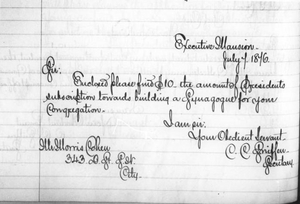 Executive Mansion.
July 7. 1876.
Sir:
Enclosed please find $10. the amount of Presidents
subscription towards building a Synagogue for your
Congregation.
I am sir:
Your Obedient Servant
C. C. Sniffen
Secretary
Mr Morris Cohen
343
City.